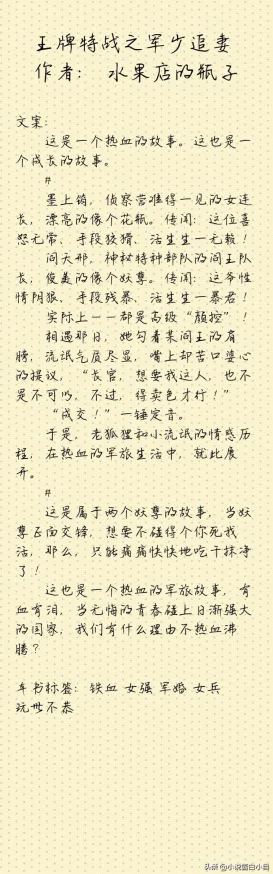 王牌特战之军少追妻
作者： 水果店的瓶子
文案：
这是一个热血的故事。这也是一
个成长的故事。
#
墨上筠，侦察营难得一见的女连
长，漂亮的像个花瓶。传闻：这位喜
怒无常、手段狡猾、活生生一无赖！
阎天邢，神秘特种部队的阎王队
长，俊美的像个妖孽。传闻：这爷性
情阴狠、手段残暴、活生生一暴君！
实际上——都是高级“颜控”！
相遇那日，她勾着某阎王的肩
膀，流氓气质尽显，嘴上却苦口婆心
的提议，“长官，想要我这人，也不
是不可以，不过，得卖色才行！”
“成交！”一锤定音。
于是，老狐狸和小流氓的情感历
程，在热血的军旅生活中，就此展
开。
#
这是属于两个妖孽的故事，当妖
孽正面交锋，想要不碰得个你死我
活，那么，只能痛痛快快地吃干抹净
了！
这也是一个热血的军旅故事，有
血有泪，当无悔的青春碰上日渐强大
的国家，我们有什么理由不热血沸
腾？
本书标签：铁血 女强 军婚 女兵
玩世不恭
头条@小说蛋白小局